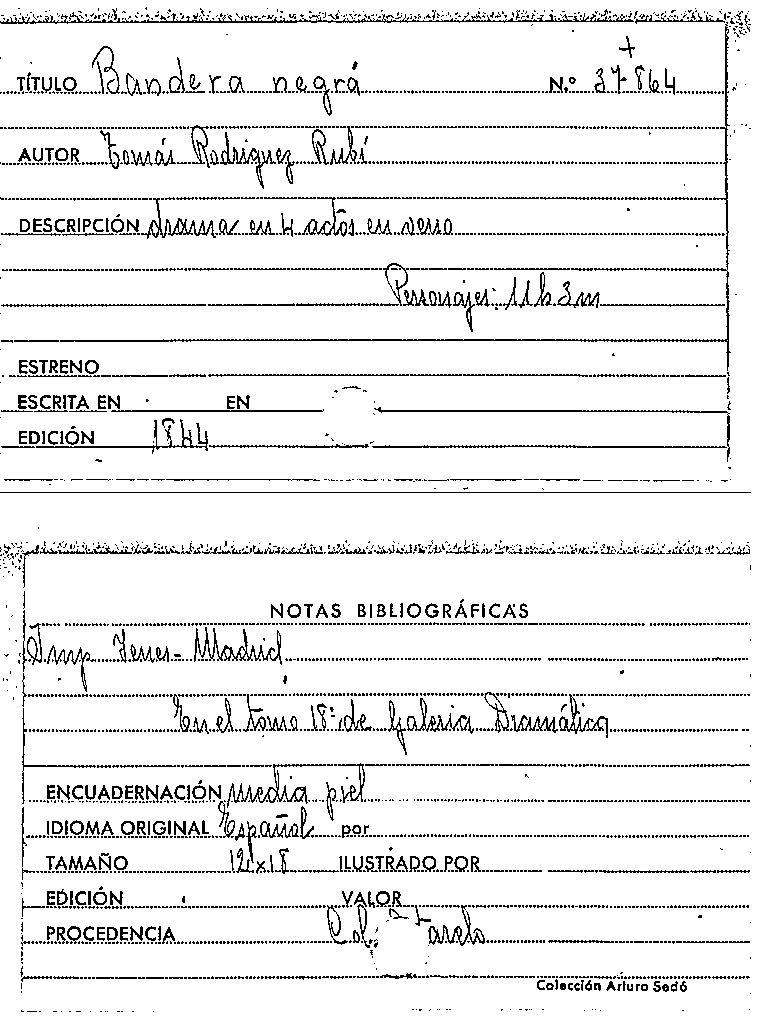 TÍTULO Bandera negra N.º 37864
AUTOR Tomás Rodriguez Rubí
DESCRIPCIÓN drama en 4 actos en verso
Personajes: 11h 3m
ESTRENO
ESCRITA EN EN
EDICIÓN 1844
NOTAS BIBLIOGRÁFICAS
Imp Yenes - Madrid
En el tomo 18º de Galeria Dramática
ENCUADERNACIÓN media piel
IDIOMA ORIGINAL Español por
TAMAÑO 12x18 ILUSTRADO POR
EDICIÓN VALOR
PROCEDENCIA Col.
Colección Arturo Sedó